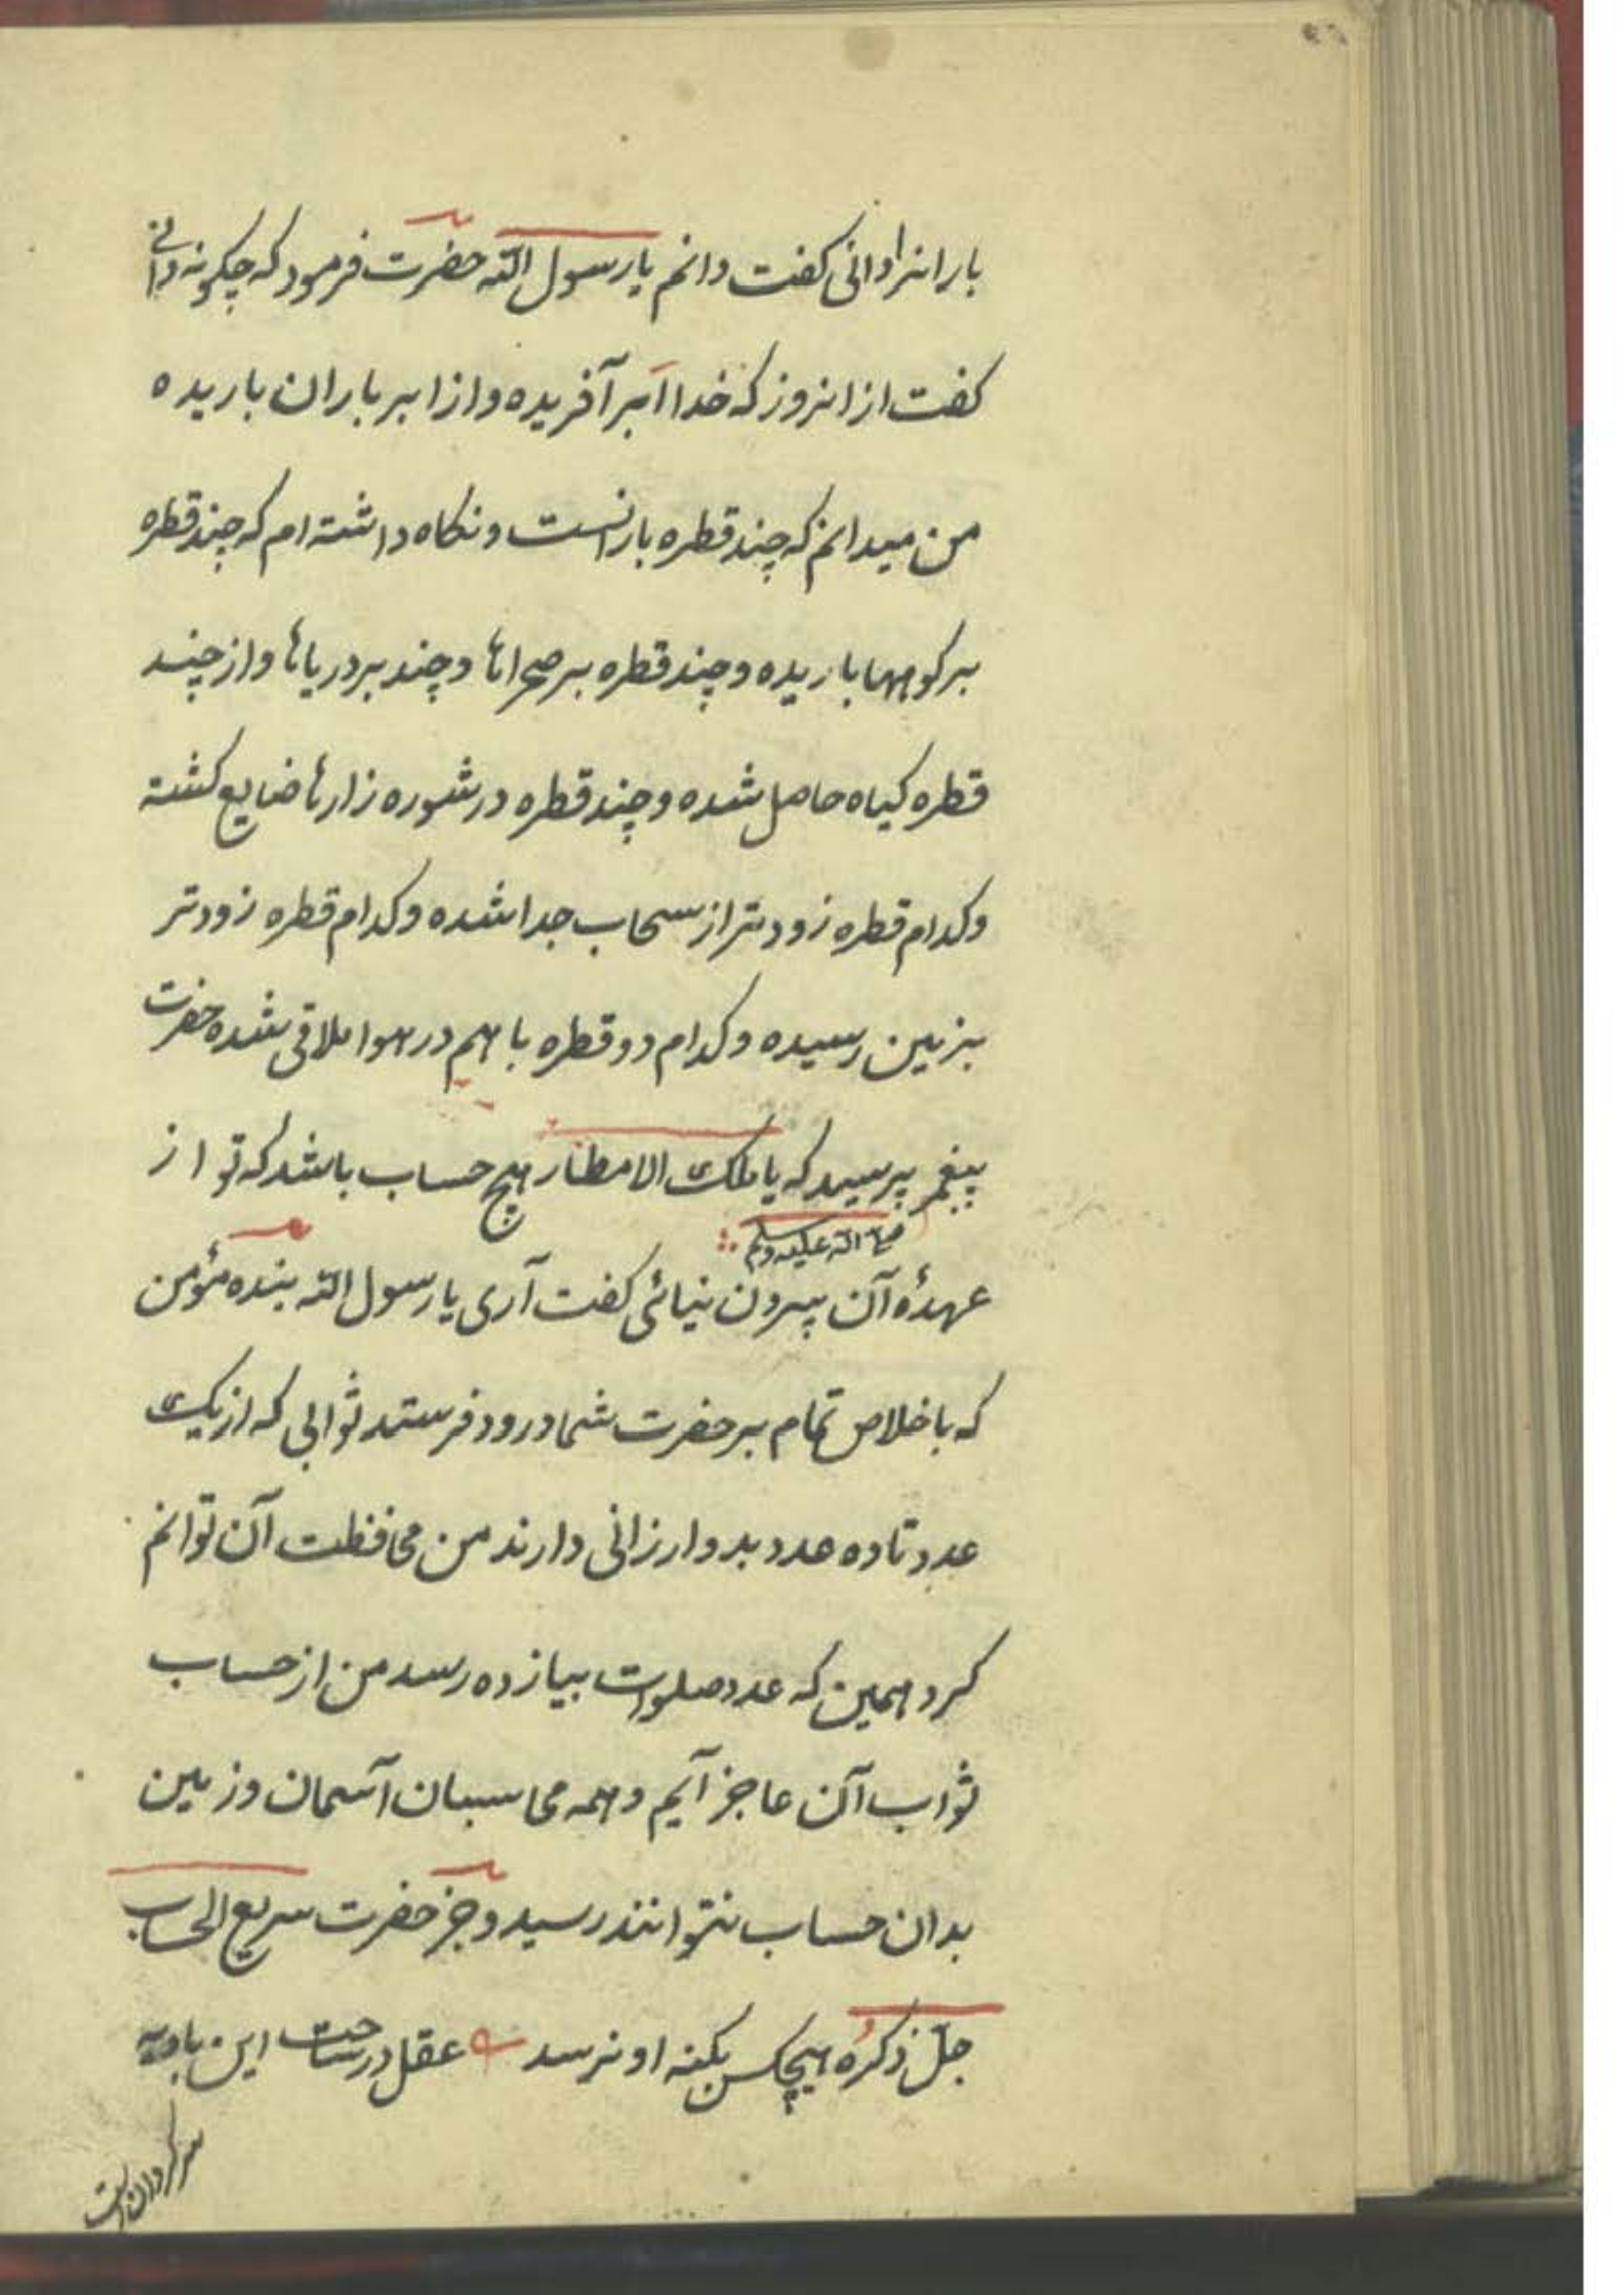 بارانرا دانی کفت دانم یا رسول الله حضرت فرمود که چکونه دانی
کفت از انروز که خدا ابر آفریده و از ابر باران باریده
من میدانم که چند قطره بارانست و نکاه داشته ام که چند قطره
بر کوهها باریده و چند قطره بر صحراها و چند بر دریاها و از چند
قطره کیاه حاصل شده و چند قطره در شوره زارها ضایع کشته
و کدام قطره زودتر از سحاب جدا شده و کدام قطره زودتر
بزمین رسیده و کدام دو قطره با هم در هوا ملاقی شده حضرت
پیغمبر پرسید که یا ملک الامطار هیچ حساب باشد که تو از
صلی الله علیه وسلم
عهدهٔ آن بیرون نیائی کفت آری یا رسول الله بنده مؤمن
که باخلاص تمام بر حضرت شما درود فرستد ثوابی که از یک
عدد تا ده عدد بدو ارزانی دارند من محافظت آن توانم
کرد همین که عدد صلوات بیازده رسد من از حساب
ثواب آن عاجز آیم و همه محاسبان آسمان و زمین
بدان حساب نتوانند رسید و جز حضرت سریع الحساب
جلّ ذکرُه هیچکس بکنه او نرسد عقل در ساحت این بادیه
سرکردان است